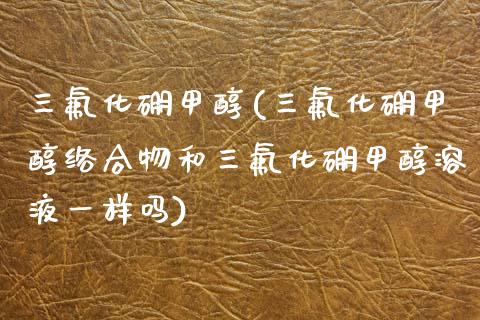 三氟化硼甲醇(三氟化硼甲
醇络合物和三氟化硼甲醇溶
液一样吗)